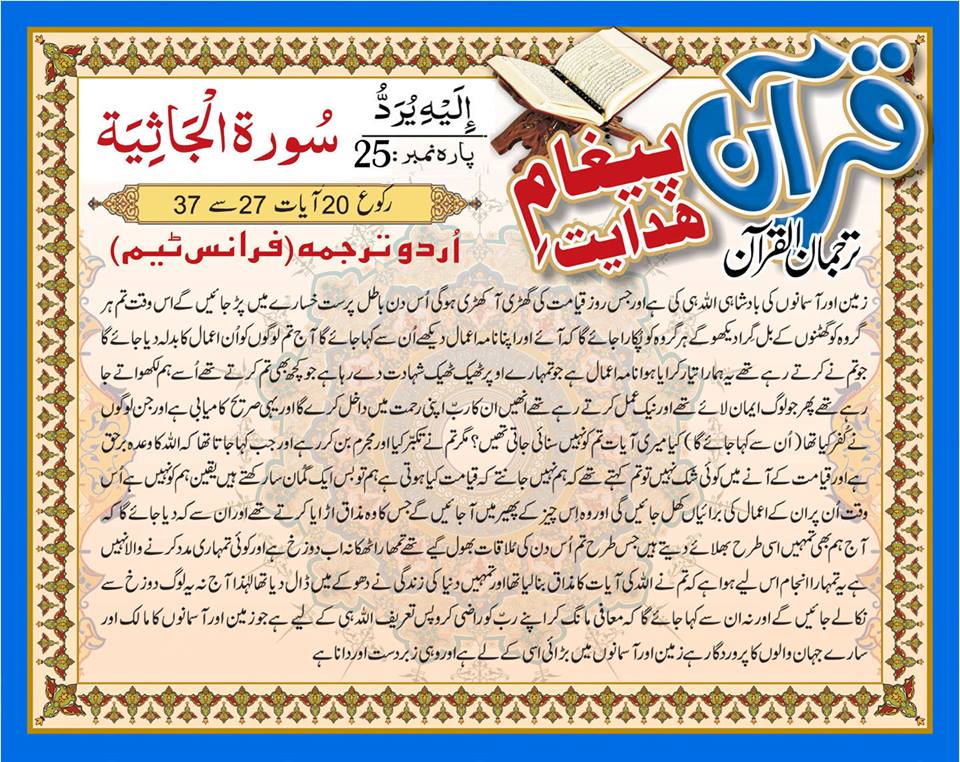 قرآن
پیغامِ
ھدایت
ترجمان القرآن
إِلَيْهِ يُرَدُّ
پارہ نمبر:25
سُورة الْجَاثِيَة
رکوع 20 آیات 27 سے 37
اُردو ترجمہ (فرانس ٹیم)
زمین اور آسمانوں کی بادشاہی اللہ ہی کی ہے اور جس روز قیامت کی گھڑی آ کھڑی ہوگی اُس دن باطل پرست خسارے میں پڑ جائیں گے اس وقت تم ہر
گروہ کو گھٹنوں کے بل گِرا دیکھو گے ہر گروہ کو پکارا جائے گا کہ آئے اور اپنا نامہ اعمال دیکھے اُن سے کہا جائے گا آج تم لوگوں کو اُن اعمال کا بدلہ دیا جائے گا
جو تم نے کرتے رہے تھے یہ ہمارا تیار کرایا ہوا نامہ اعمال ہے جو تمہارے اوپر ٹھیک ٹھیک شہادت دے رہا ہے جو کچھ بھی تم کرتے تھے اُسے ہم لکھواتے جا
رہے تھے پھر جو لوگ ایمان لائے تھے اور نیک عمل کرتے رہے تھے انھیں ان کا ربّ اپنی رحمت میں داخل کرے گا اور یہی صریح کامیابی ہے اور جن لوگوں
نے کُفر کیا تھا ( اُن سے کہا جائے گا ) کیا میری آیات تم کو نہیں سنائی جاتی تھیں؟ مگر تم نے تکبّر کیا اور مجرم بن کر رہے اور جب کہا جاتا تھا کہ اللہ کا وعدہ برحق
ہے اور قیامت کے آنے میں کوئی شک نہیں تو تم کہتے تھے کہ ہم نہیں جانتے کہ قیامت کیا ہوتی ہے ہم تو بس ایک گمان سا رکھتے ہیں یقین ہم کو نہیں ہے اُس
وقت اُن پر ان کے اعمال کی برائیاں کھل جائیں گی اور وہ اِس چیز کے پھیر میں آ جائیں گے جس کا وہ مذاق اڑایا کرتے تھے اور ان سے کہ دیا جائے گا کہ
آج ہم بھی تمہیں اسی طرح بھلائے دیتے ہیں جس طرح تم اُس دن کی مُلاقات بھول گئے تھے تمھارا ٹھکانہ اب دوزخ ہے اور کوئی تمہاری مدد کرنے والا نہیں
ہے یہ تمہارا انجام اس لیے ہوا ہے کہ تم نے اللہ کی آیات کا مذاق بنا لیا تھا اور تمہیں دنیا کی زندگی نے دھوکے میں ڈال دیا تھا لہٰذا آج نہ یہ لوگ دوزخ سے
نکالے جائیں گے اور نہ ان سے کہا جائے گا کہ معافی مانگ کر اپنے ربّ کو راضی کرو پس تعریف اللہ ہی کے لیے ہے جو زمین اور آسمانوں کا مالک اور
سارے جہان والوں کا پروردگار ہے زمین اور آسمانوں میں بڑائی اسی کے لے ہے اور وہی زبردست اور دانا ہے